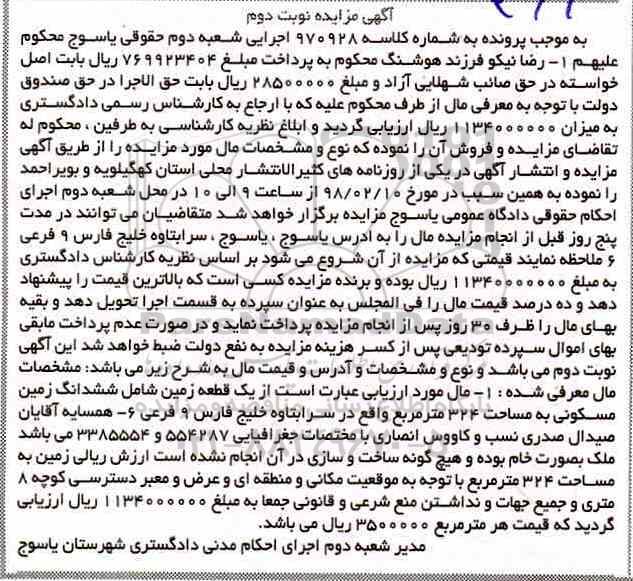 آگهی مزایده نوبت دوم
به موجب پرونده به شماره کلاسه ۹۷۰۹۲۸ اجرایی شعبه دوم حقوقی یاسوج محکوم
علیهم ۱- رضا نیکو فرزند هوشنگ محکوم به پرداخت مبلغ ۷۶۹۹۲۳۴۰۴ ریال بابت اصل
خواسته در حق صائب شهلایی آزاد و مبلغ ۲۸۵۰۰۰۰۰ ریال بابت حق الاجرا در حق صندوق
دولت با توجه به معرفی مال از طرف محکوم علیه که با ارجاع به کارشناس رسمی دادگستری
به میزان ۱۱۳۴۰۰۰۰۰۰ ریال ارزیابی گردید و ابلاغ نظریه کارشناسی به طرفین ، محکوم له
تقاضای مزایده و فروش آن را نموده که نوع و مشخصات مال مورد مزایده را از طریق آگهی
مزایده و انتشار آگهی در یکی از روزنامه های کثیرالانتشار محلی استان کهگیلویه و بویراحمد
را نموده به همین سبب در مورخ ۹۸/۰۲/۱۰ از ساعت ۹ الی ۱۰ در محل شعبه دوم اجرای
احکام حقوقی دادگاه عمومی یاسوج مزایده برگزار خواهد شد متقاضیان می توانند در مدت
پنج روز قبل از انجام مزایده مال را به ادرس یاسوج ، یاسوج ، سرابتاوه خلیج فارس ۹ فرعی
۶ ملاحظه نمایند قیمتی که مزایده از آن شروع می شود بر اساس نظریه کارشناس دادگستری
به مبلغ ۱۱۳۴۰۰۰۰۰۰۰ ریال بوده و برنده مزایده کسی است که بالاترین قیمت را پیشنهاد
دهد و ده درصد قیمت مال را فی المجلس به عنوان سپرده به قسمت اجرا تحویل دهد و بقیه
بهای مال را ظرف ۳۰ روز پس از انجام مزایده پرداخت نماید و در صورت عدم پرداخت مابقی
بهای اموال سپرده تودیعی پس از کسر هزینه مزایده به نفع دولت ضبط خواهد شد این آگهی
نوبت دوم می باشد و نوع و مشخصات و آدرس و قیمت مال به شرح زیر می باشد: مشخصات
مال معرفی شده : ۱- مال مورد ارزیابی عبارت است از یک قطعه زمین شامل ششدانگ زمین
مسکونی به مساحت ۳۲۴ مترمربع واقع در سرابتاوه خلیج فارس ۹ فرعی ۶- همسایه آقایان
صیدال صدری نسب و کاووس انصاری با مختصات جغرافیایی ۵۵۴۲۸۷ و ۳۳۸۵۵۵۴ می باشد
ملک بصورت خام بوده و هیچ گونه ساخت و سازی در آن انجام نشده است ارزش ریالی زمین به
مساحت ۳۲۴ مترمربع با توجه به موقعیت مکانی و منطقه ای و عرض و معبر دسترسی کوچه ۸
متری و جمیع جهات و نداشتن منع شرعی و قانونی جمعا به مبلغ ۱۱۳۴۰۰۰۰۰۰ ریال ارزیابی
گردید که قیمت هر مترمربع ۳۵۰۰۰۰۰ ریال می باشد.
مدیر شعبه دوم اجرای احکام مدنی دادگستری شهرستان یاسوج